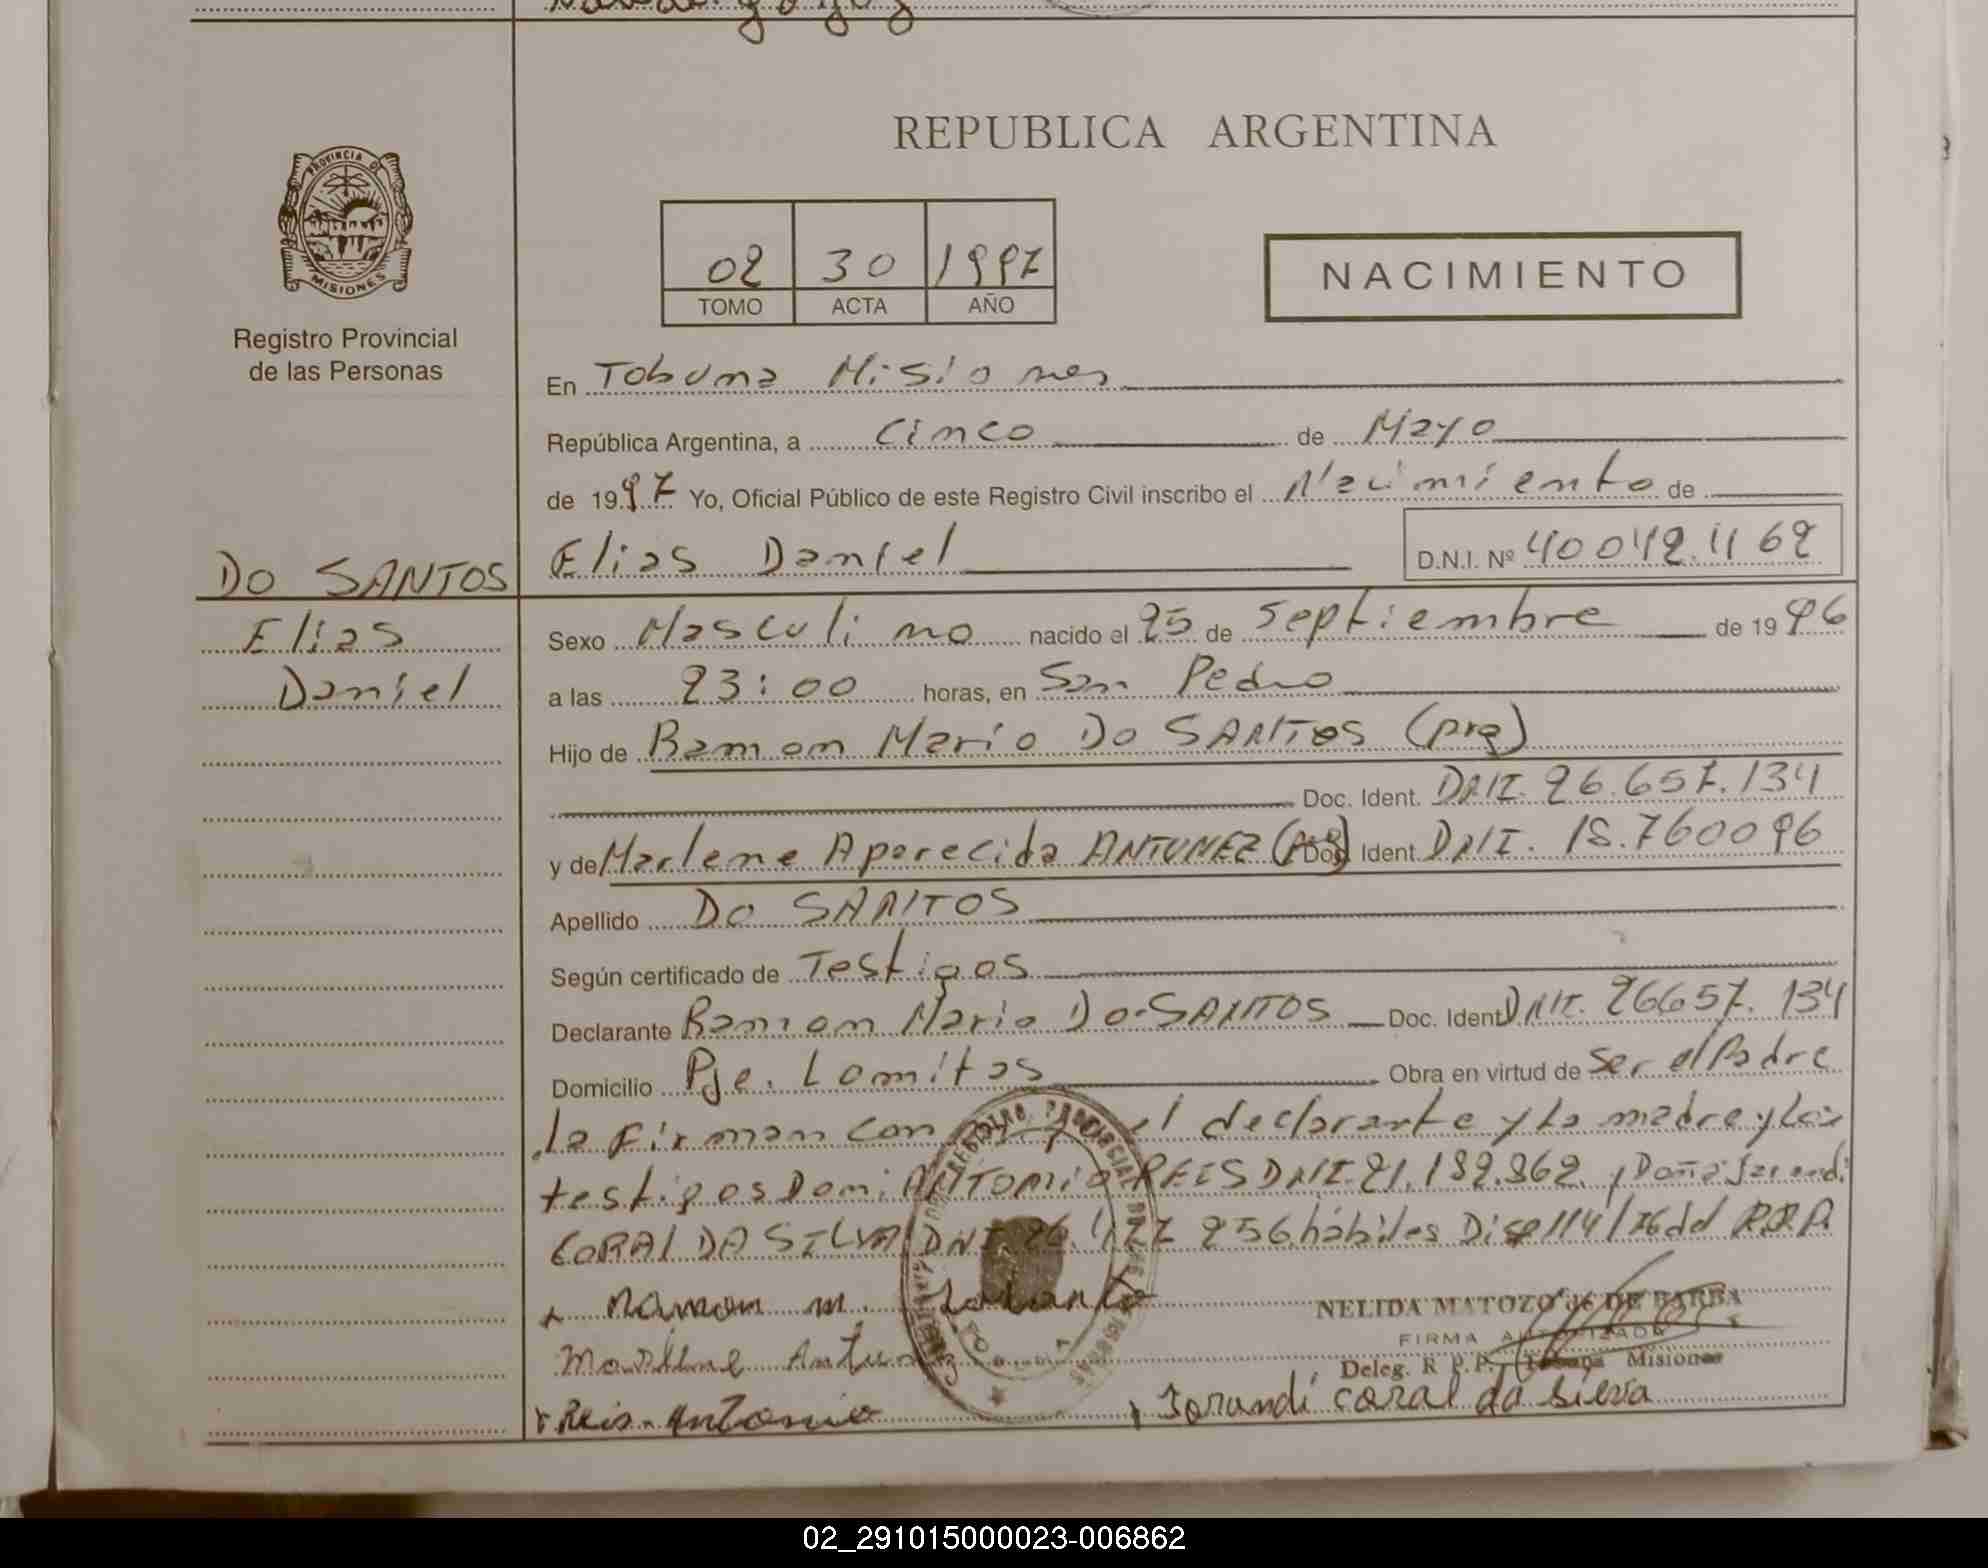 REPUBLICA ARGENTINA
PROVINCIA DE
MISIONES
Registro Provincial
de las Personas
02 30 1997
TOMO ACTA AÑO
NACIMIENTO
En Tobuna Misiones
República Argentina, a Cinco de Mayo
de 1997 Yo, Oficial Público de este Registro Civil inscribo el Nacimiento de
Elias Daniel D.N.I. Nº
DO SANTOS
Elias
Daniel
Sexo Masculino nacido el 25 de Septiembre de 1996
a las 23:00 horas, en San Pedro
Hijo de Ramon Mario DO SANTOS (arg)
Doc. Ident. DNI. 26.657.134
y de Marlene Aparecida ANTUNEZ Doc. Ident. DNI. 18.760096
Apellido DO SANTOS
Según certificado de Testigos
Declarante Ramon Mario DO-SANTOS Doc. Ident DNI. 26657.134
Domicilio Pje. Lomitas Obra en virtud de Ser el Padre
la Firman con el declarante y la madre y Los
testigos Don: ANTONIO REIS DNI. 21.182.362. y Doña
CORAL DA SILVA DNI 256 hábiles del R.P.P.
Ramon m.
NELIDA MATOZO de DE BARBA
FIRMA AUTORIZADA
Deleg. R.P.P. Tobuna Misiones
Marlene Antunez
Reis Antonio Jorandi coral da silva
02_291015000023-006862